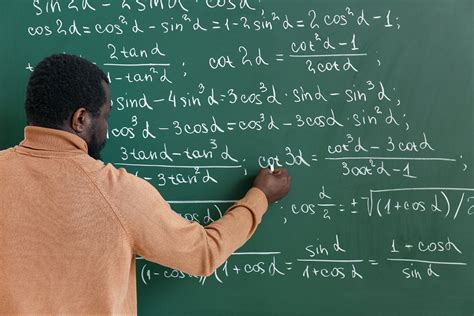 sin2α = 2sinα cosα;
cos2α = cos²α - sin²α = 1 - 2sin²α = 2cos²α - 1;
2tanα / - tan²α ; cot 2α = cot²α - 1 / 2cotα ;
sinα - 4sin³α = 3cos²α · sinα - sin³α ;
cos³α - 3cosα = cos³α - 3cosα · sin²α ;
3tanα - tan³α / 1 - 3tan²α ; cot3α = cot³α - 3cotα / 3cot²α - 1
; cos α/2 = ±√(1 + cosα)/
(1 - cosα)(1 + cosα) = sinα / 1 + cosα = 1 + cosα / sinα